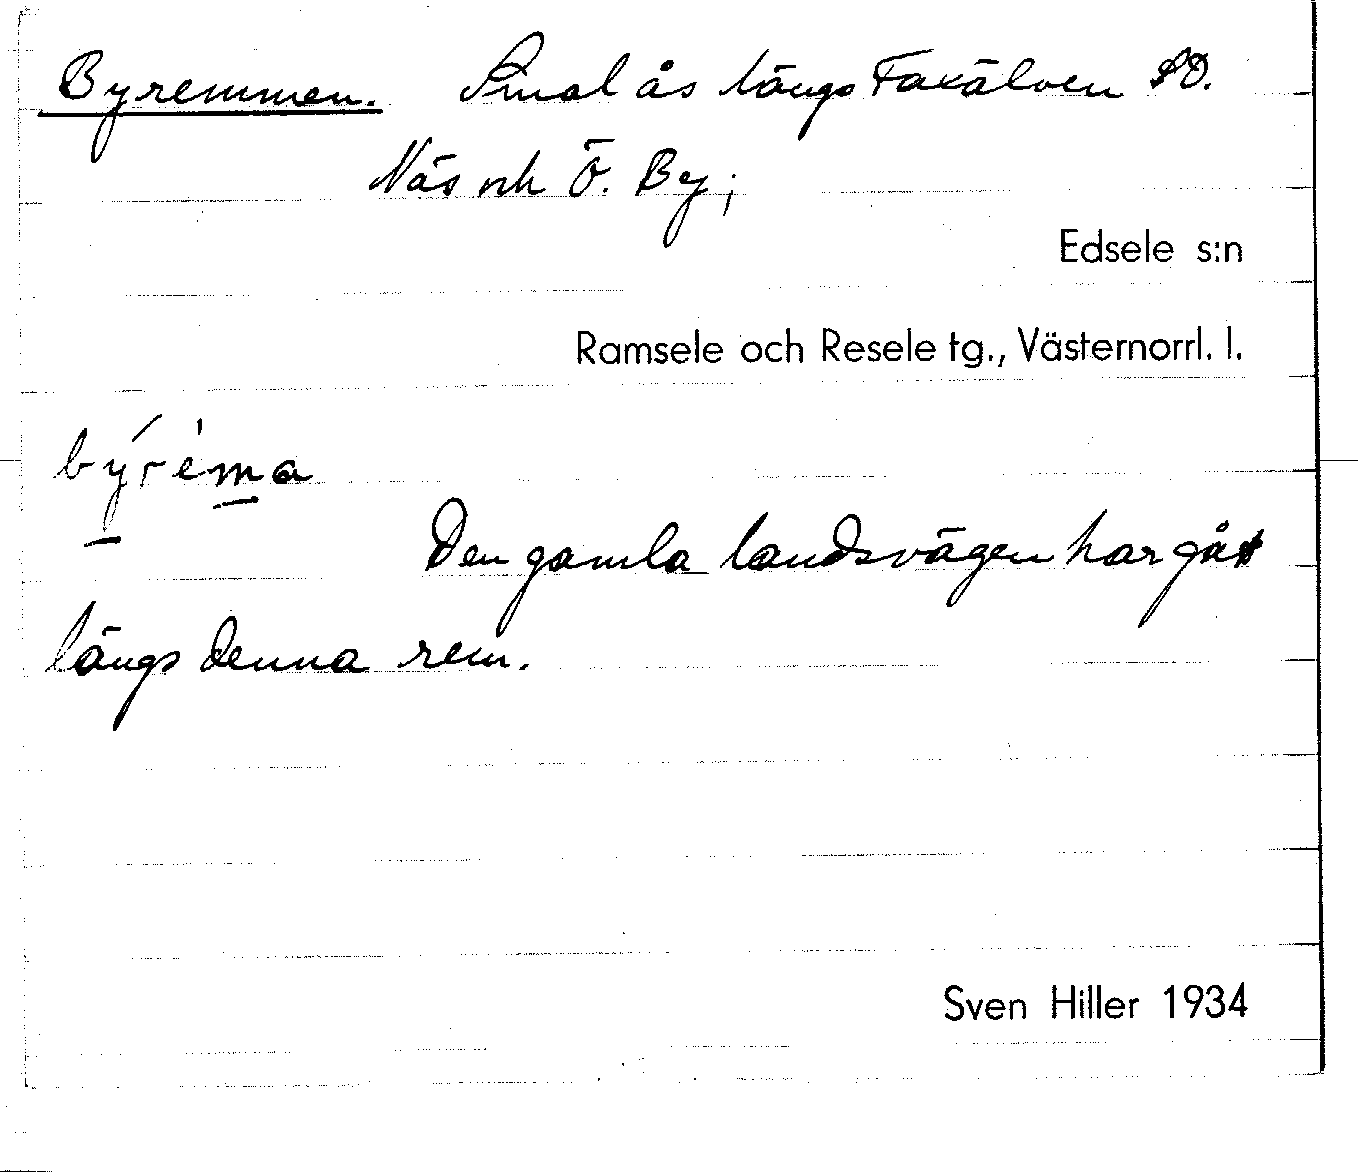 Byremmen. Smal ås längs Faxälven SO.
Näs och Ö. By;
Edsele s:n
Ramsele och Resele tg., Västernorrl. l.
byrema
Den gamla landsvägen har gått
längs denna rem.
Sven Hiller 1934